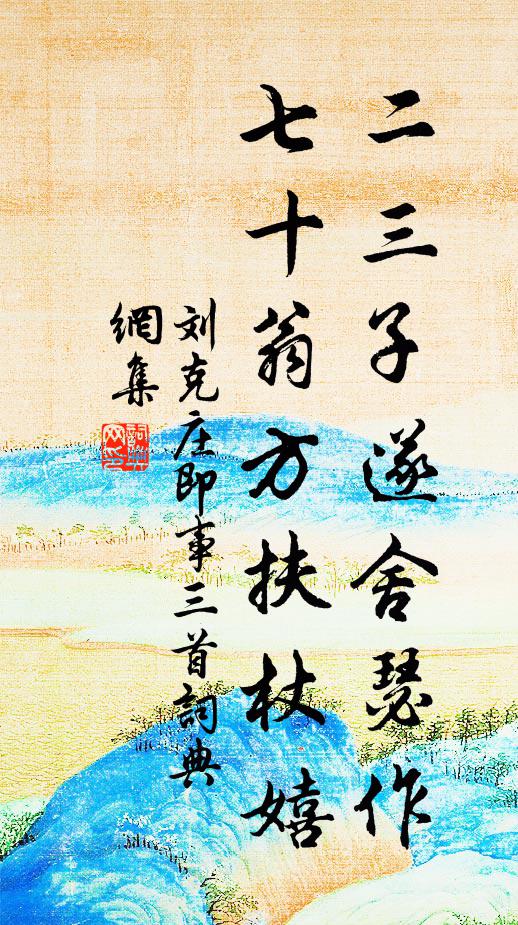 二三子遂舍瑟作
七十翁方扶杖嬉
刘克庄即事三首詞典
網集